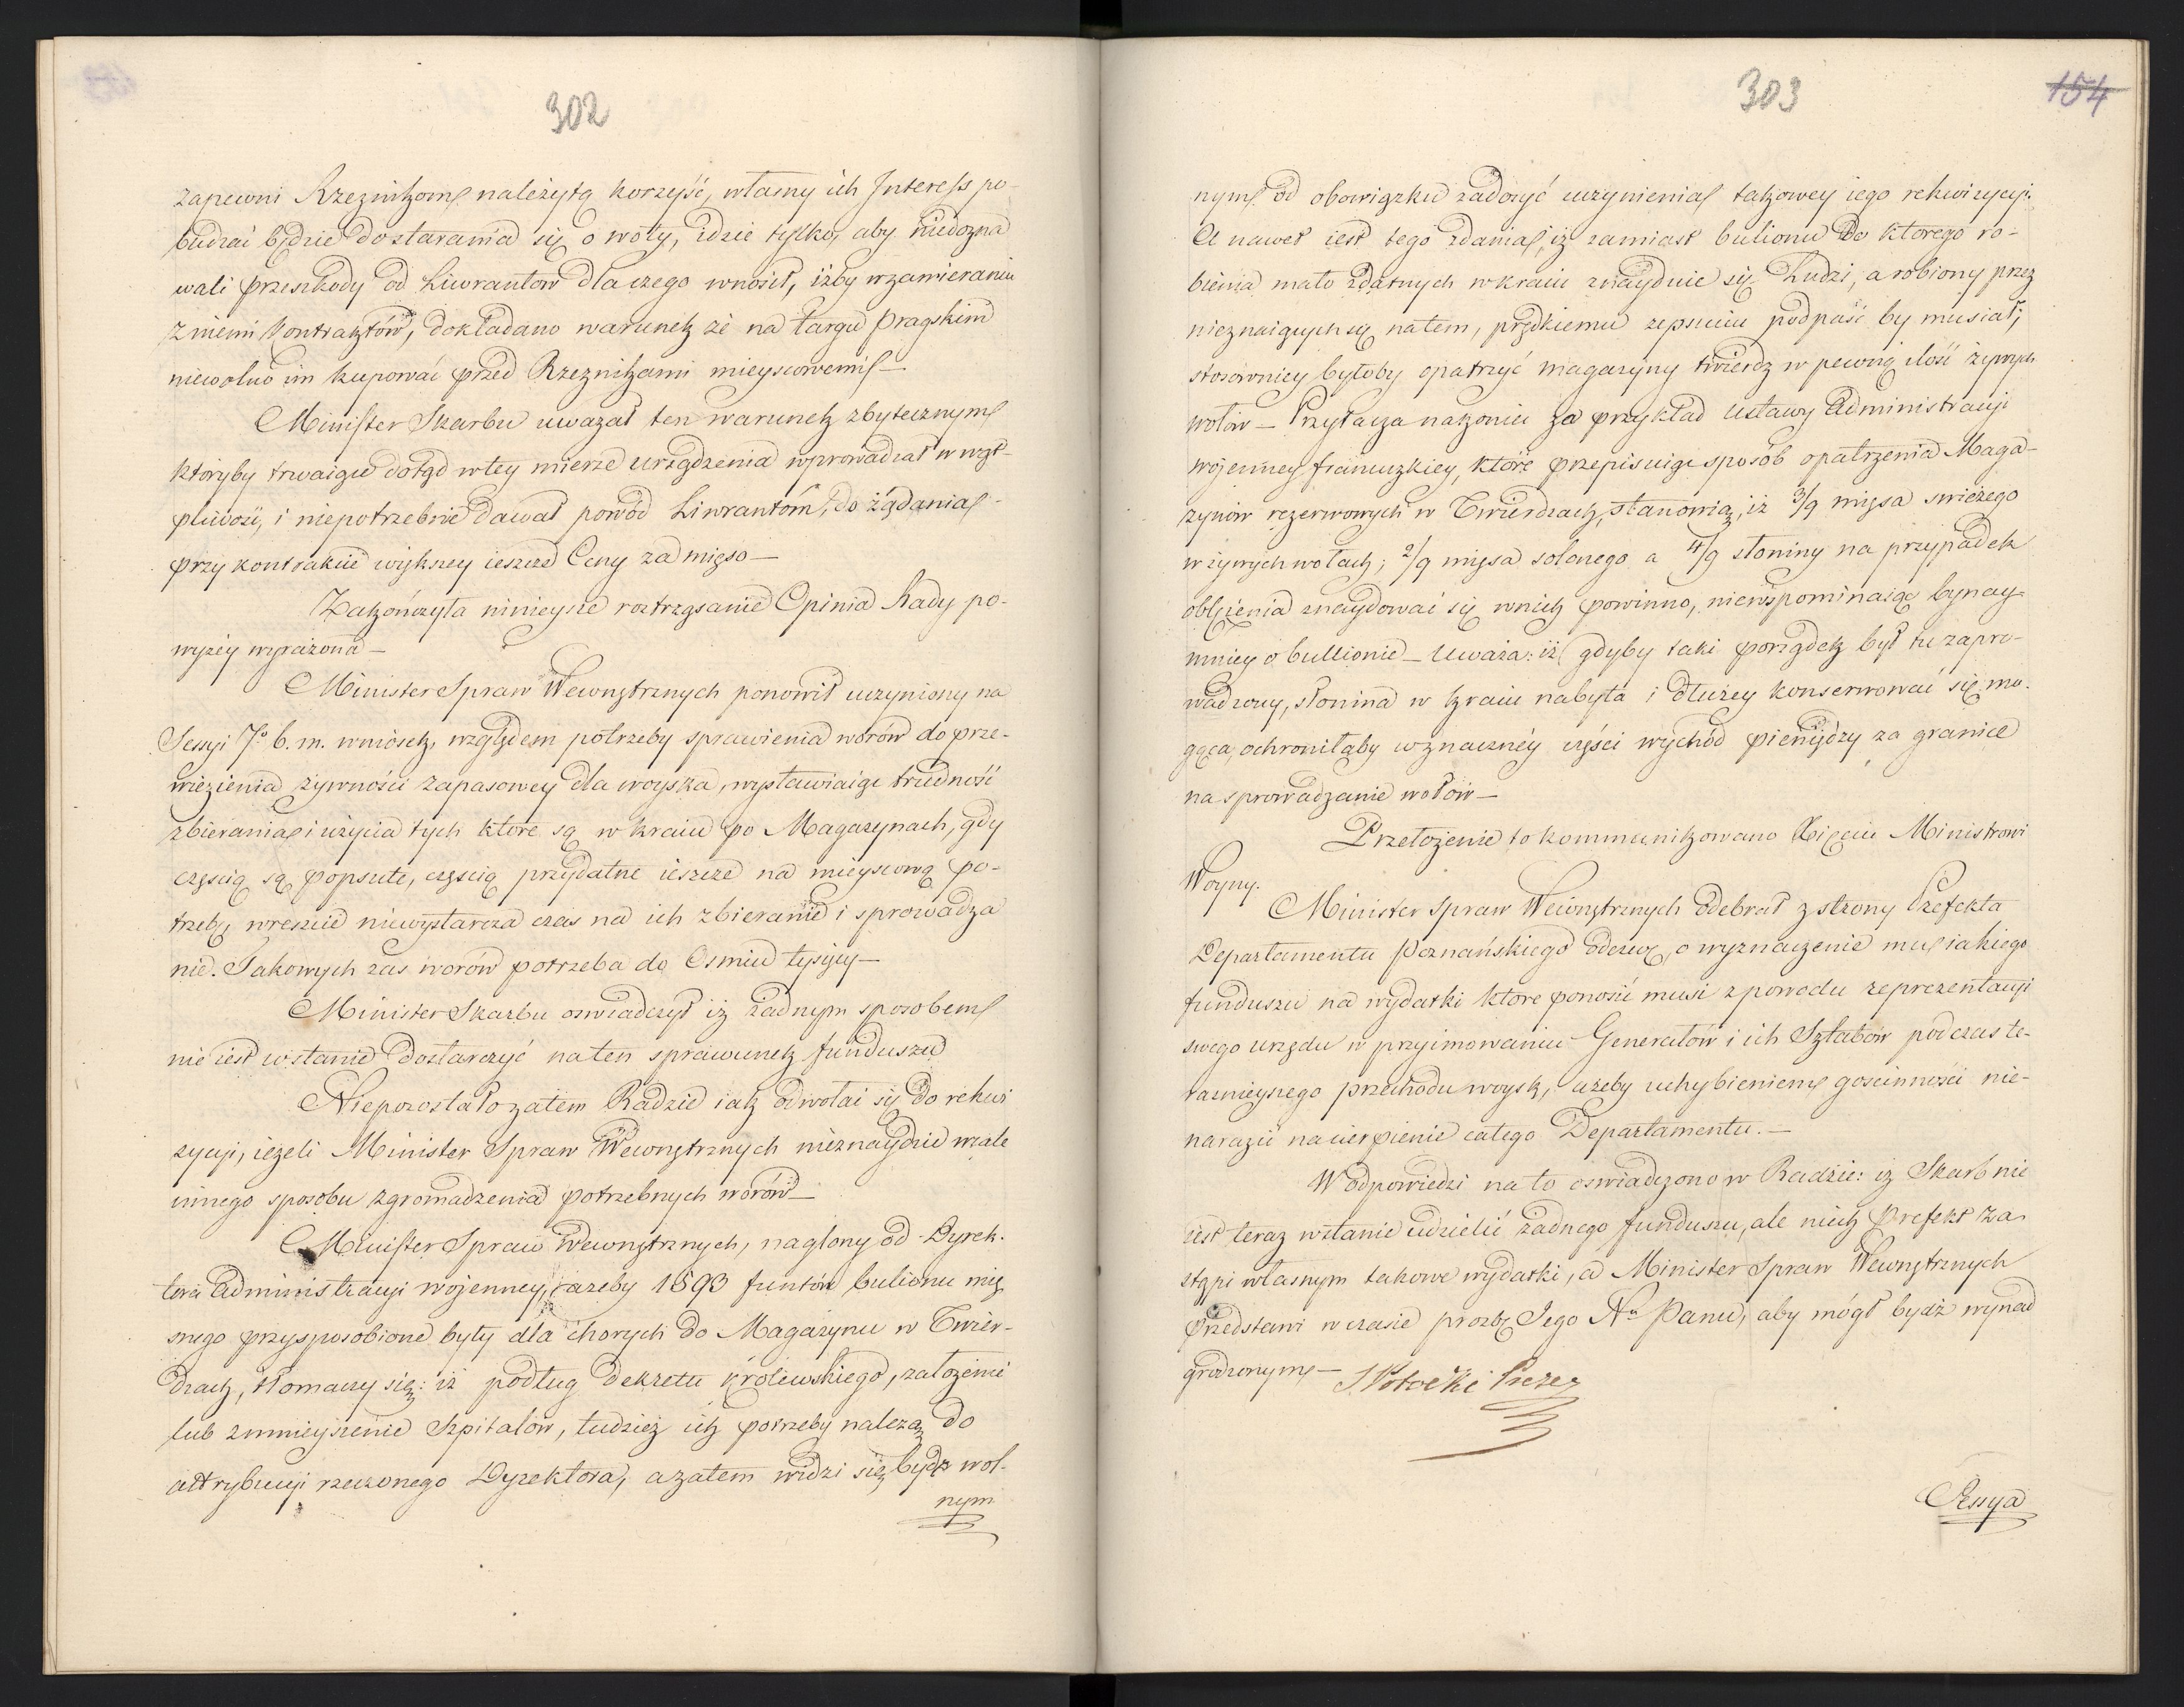 302
zapewni Rzeznikom należytą korzyść, własny ich Interess po-
budzać będzie do starania się o woły, idzie tylko, aby niedozna
wali przeszkody od Liwrantow dla czego wnosił, iżby w zawieraniu
z niemi kontraktów, dokładano warunek że na targu pragskim
niewolno im kupować przed Rzeznikami mieyscowemi —
Minister Skarbu uważał ten warunek zbytecznym
któryby trwaiące dotąd w tey mierze urządzenia wprowadzał w wąt-
pliwość, i niepotrzebnie dawał powód Liwrantóm, do żądania
przy kontrakcie większey ieszcze Ceny za mięso —
Zakończyła ninieysze roztrząsanie Opinia Rady po-
wyżey wyrażona —
Minister Spraw Wewnętrznych ponowił uczyniony na
Sessyi 7o b. m. wniosek, względem potrzeby sprawienia worów do prze-
wiezienia żywności zapasowey dla woyska, wystawiaiąc trudność
zbierania i użycia tych które są w kraiu po Magazynach, gdy
częścią są popsute, częścią przydatne ieszcze na mieyscową po-
trzebę, wreszcie niewystarcza czas na ich zbieranie i sprowadza
nie. Takowych zas worów potrzeba do Osmiu tysięcy —
Minister Skarbu oswiadczył iż żadnym sposobem
nie iest w stanie dostarczyć na ten sprawunek funduszu
Niepozostało zatem Radzie iak odwołać się do rekwi
zycyi, ieżeli Minister Spraw Wewnętrznych nieznaydzie wcale
innego sposobu zgromadzenia potrzebnych worów —
Minister Spraw Wewnętrznych, naglony od Dyrek-
tora Administracyi wojenney, ażeby 1593 funtów bulionu mię
snego przysposobione były dla chorych do Magazynu w Twier-
dzach, tłomaczy się: iż podług dekretu królewskiego, założenie
lub zmnieyszenie Szpitalów, tudzież ich potrzeby należą do
attrybucyi rzeczonego Dyrektora, a zatem widzi się bydź wol-
nym
303
154
nym od obowiązku zadosyć uczynienia takowey iego rekwizycyi.
A nawet iest tego zdania, iż zamiast bulionu do ktorego ro-
bienia mało zdatnych w kraiu znayduie się Ludzi, a robiony przez
nieznaiących się na tem, prędkiemu zepsuciu podpaść by musiał,
stosowniey byłoby opatrzyć magazyny twierdz w pewną ilość żywych
wołów — Przytacza na koniec za przykład Ustawy Administracyi
wojenney francuzkiey, które przepisuiąc sposób opatrzenia Maga-
zynów rezerwowych w Twierdzach, stanowią, iż 3/9 mięsa swieżego
w żywych wołach; 2/9 mięsa solonego a 4/9 słoniny na przypadek
oblężenia znaydować się w nich powinno, niewspominaiąc bynay-
mniey o bullionie — Uważa: iż gdyby taki porządek był tu zapro-
wadzony, słonina w kraiu nabyta i dłużey konserwować się mo-
gąca, ochroniłaby w znaczney części wychód pieniędzy za granicę
na sprowadzanie wołów —
Przełożenie to kommunikowano Xięciu Ministrowi
Woyny.
Minister Spraw Wewnętrznych odebrał z strony Prefekta
Departamentu Poznańskiego odezwę, o wyznaczenie mu iakiego
funduszu na wydatki które ponosić musi z powodu reprezentacyi
swego urzędu w przyimowaniu Generałów i ich Sztabów podczas te-
raznieyszego przechodu woysk, ażeby uchybieniem goscinności nie-
narazić na cierpienie całego Departamentu. —
W odpowiedzi na to oswiadczono w Radzie: iż Skarb nie
iest teraz w stanie udzielić żadnego funduszu, ale niech Prefekt za-
stąpi własnym takowe wydatki, a Minister Spraw Wewnętrznych
Przedstawi w czasie prozbę Jego Nu Panu, aby mógł bydź wynad
grodzonym —
S Potocki Prezes
Sessya